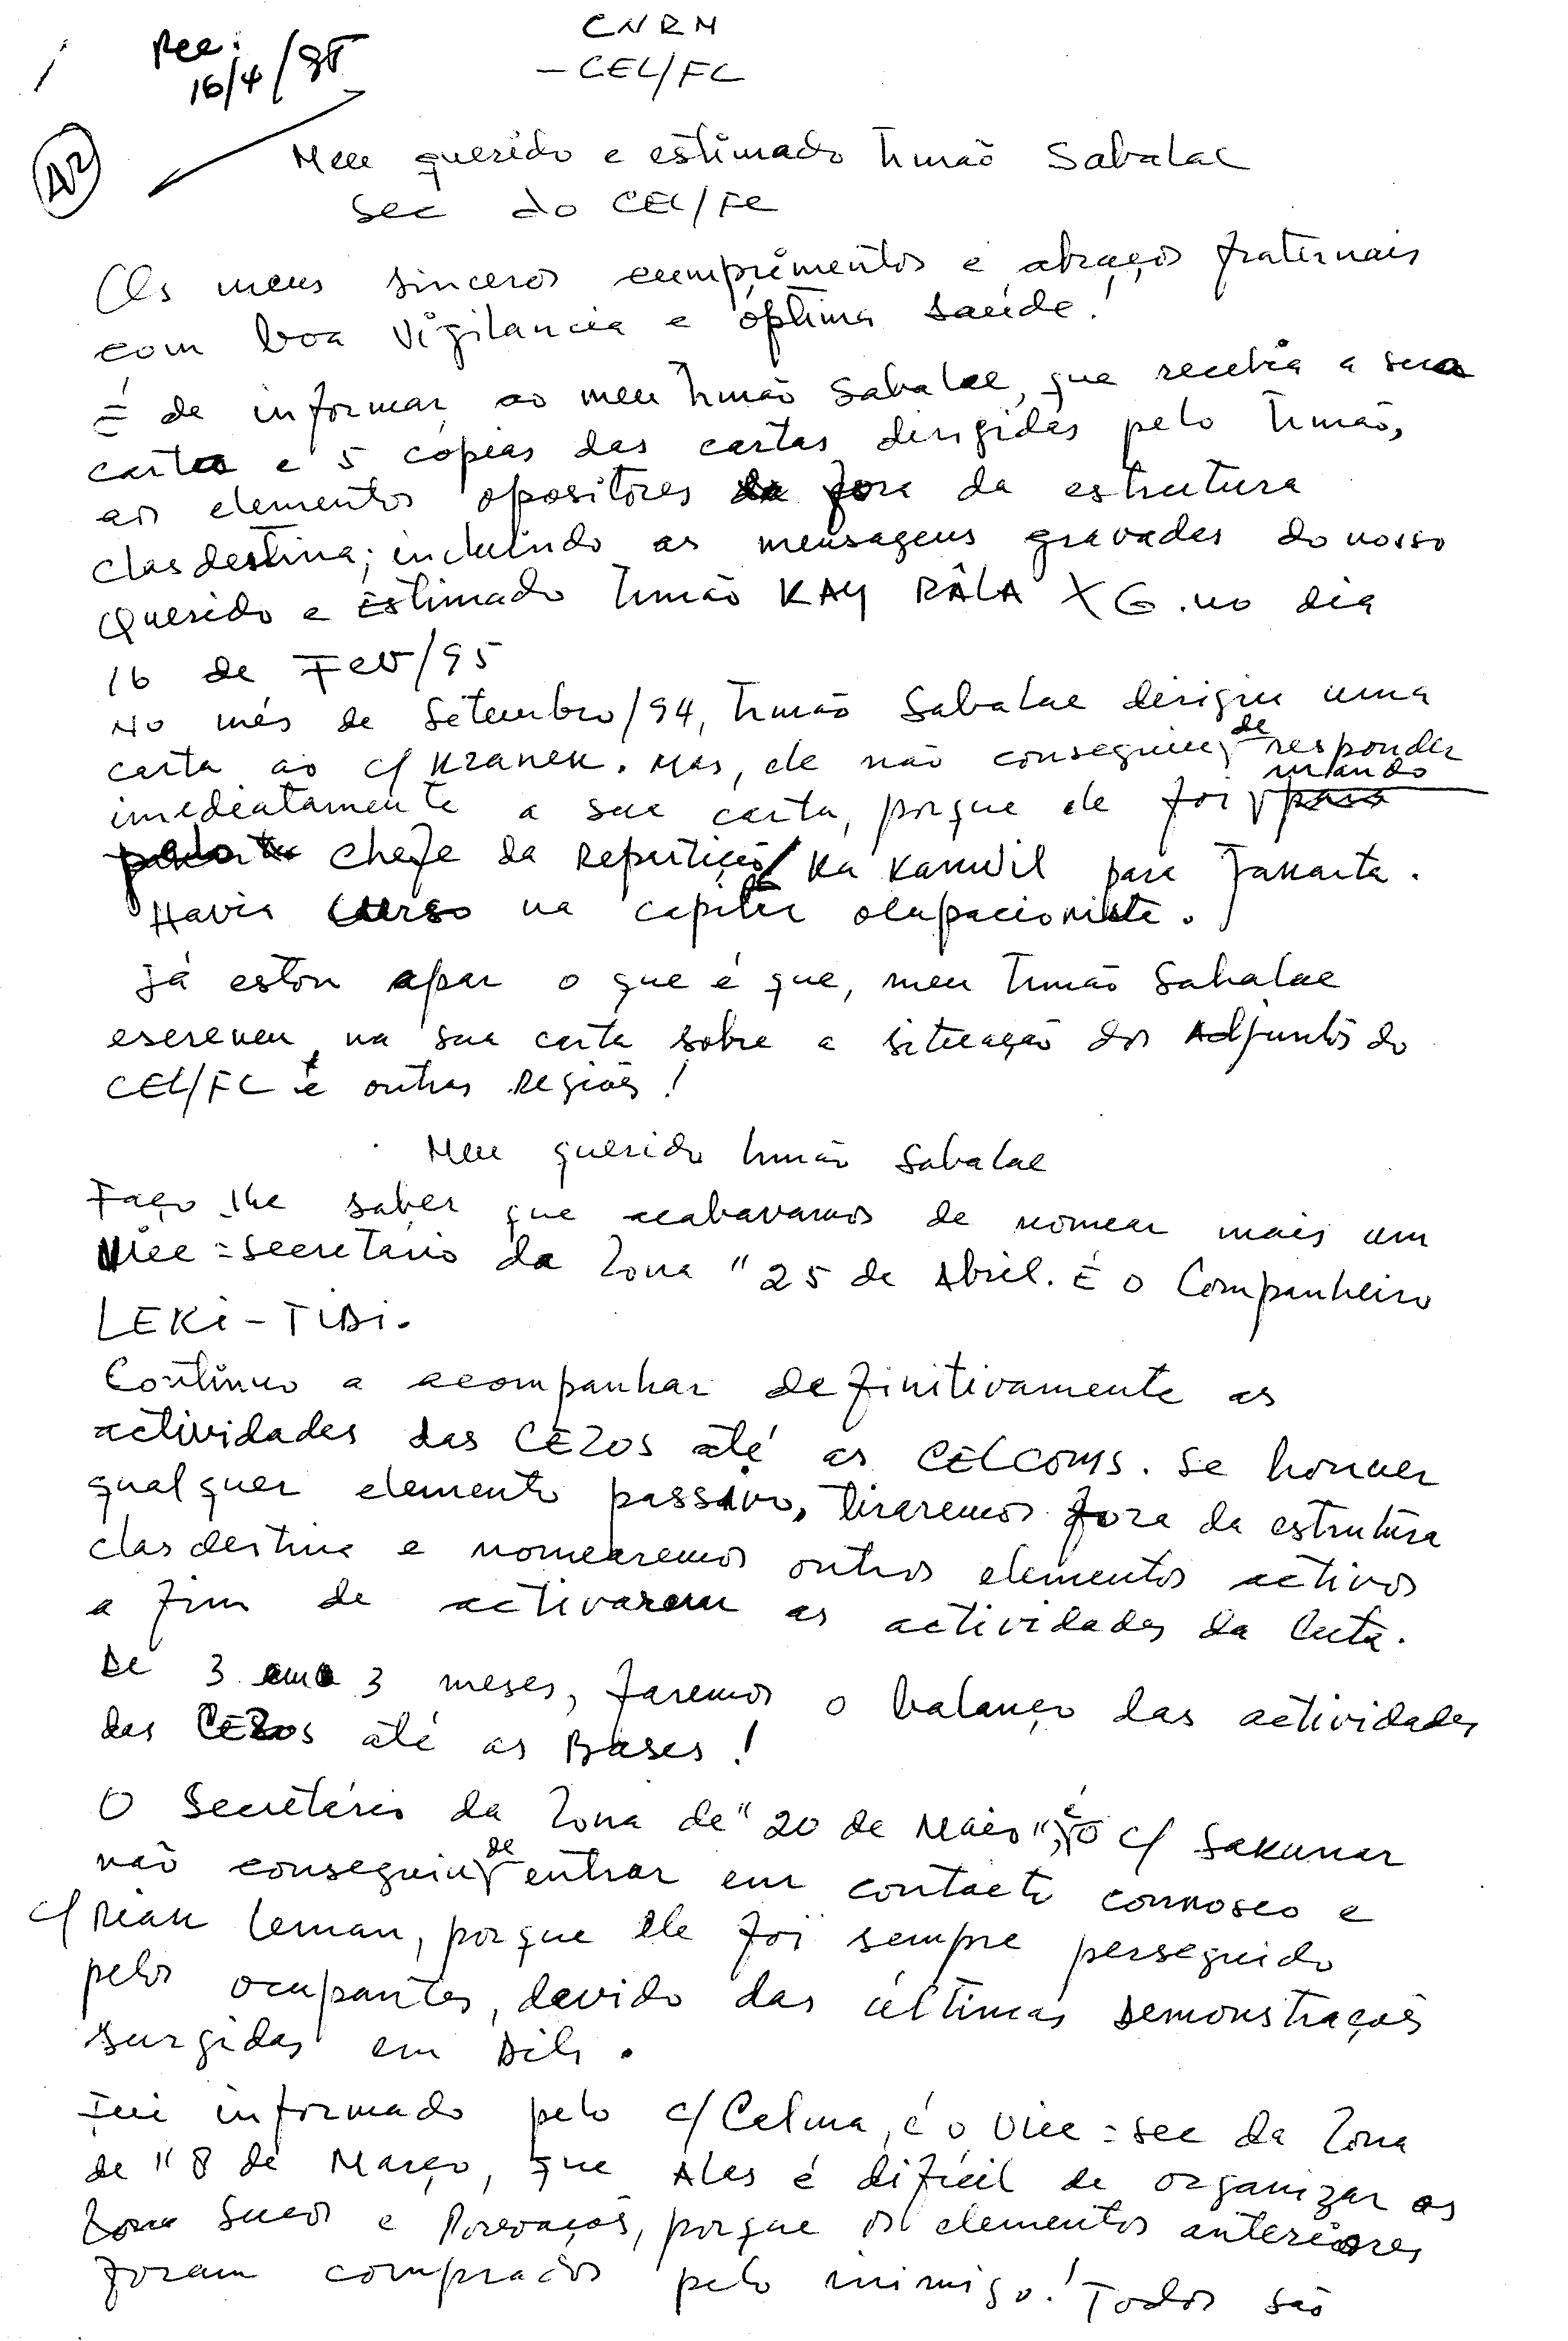 Rec:
16/4/95
CNRM
- CEL/FC
A2
Meu querido e estimado Irmão Sabalae
Sec do CEL/FC
Os meus sinceros cumprimentos e abraços fraternais
com boa vigilancia e óptima saúde!
É de informar, ao meu Irmão Sabalae, que recebia a sua
carta e 5 cópias das cartas dirigidas pelo Irmão,
aos elementos opositores fora da estrutura
clasdestina; incluindo as mensagens gravadas do nosso
Querido e Estimado Irmão KAY RÂLA XG. no dia
16 de Fev/95
No mês de Setembro/94, Irmão Sabalae dirigiu uma
carta ao c/ Kranek. Mas, ele não conseguiu de responder
imediatamente a sua carta, porque ele foi mandado
pelo chefe da Repartição/ Ka Kanwil para Jakarta.
Havia curso na capital ocupacionista.
Já estou apar o que é que, meu Irmão Sabalae
escreveu, na sua carta sobre a situação dos Adjuntos do
CEL/FC e outras Regiões!
Meu querido Irmão Sabalae
Faço-lhe saber que acabavamos de nomear mais um
Vice=Secretário da Zona "25 de Abril. É o Companheiro
LEKI-TIBI.
Continuo a acompanhar definitivamente as
actividades das CEZOS até as CELCOMS. Se houver
qualquer elemento passivo, tiraremos fora da estrutura
clasdestina e nomearemos outros elementos activos
a fim de activarem as actividades da luta.
De 3 em 3 meses, faremos o balanço das actividades
das CEZOS até as Bases!
O Secretário da Zona de "20 de Maio", é o c/ Sakunar
não conseguiu de entrar em contacto connosco e
c/ Riak Leman, porque ele foi sempre perseguido
pelos ocupantes, devido das últimas Demonstrações
surgidas em Dili.
Fui informado pelo c/ Celma, é o Vice=Sec da Zona
de "8 de Março, que Alas é difícil de organizar os
Zona Sucos e Povoações, porque os elementos anteriores
foram comprados pelo inimigo! Todos são